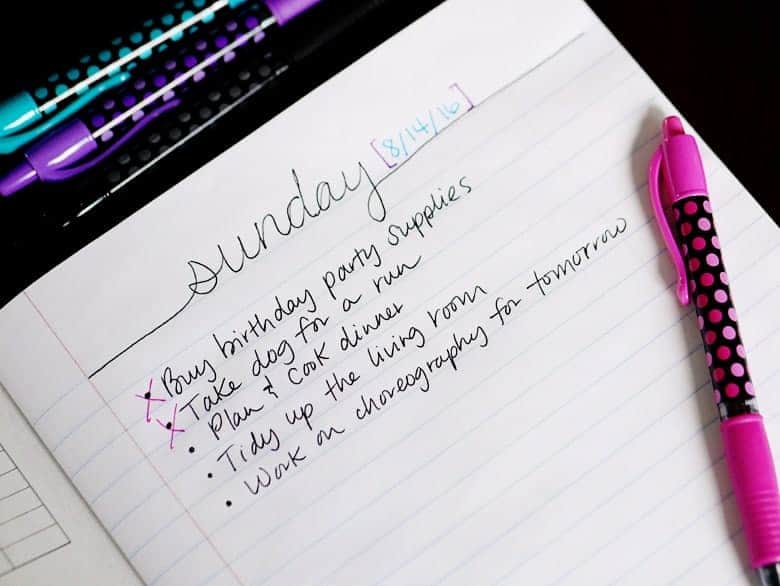 sunday [8/14/16]
x Buy birthday party supplies
x Take dog for a run
• Plan & Cook dinner
• Tidy up the living room
• Work on choreography for tomorrow